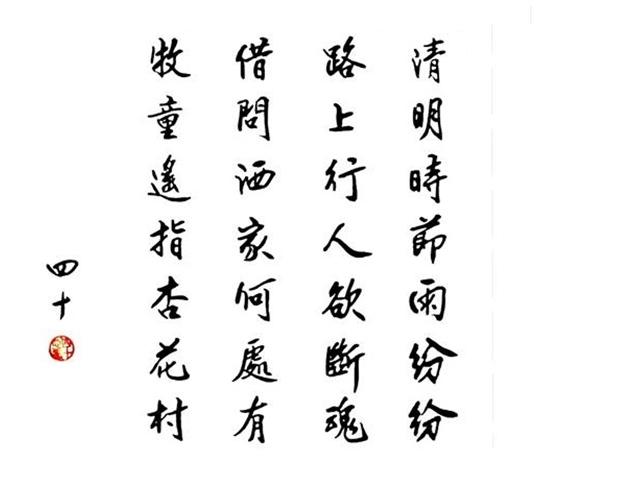 清明時節雨紛紛
路上行人欲斷魂
借問酒家何處有
牧童遙指杏花村
四十